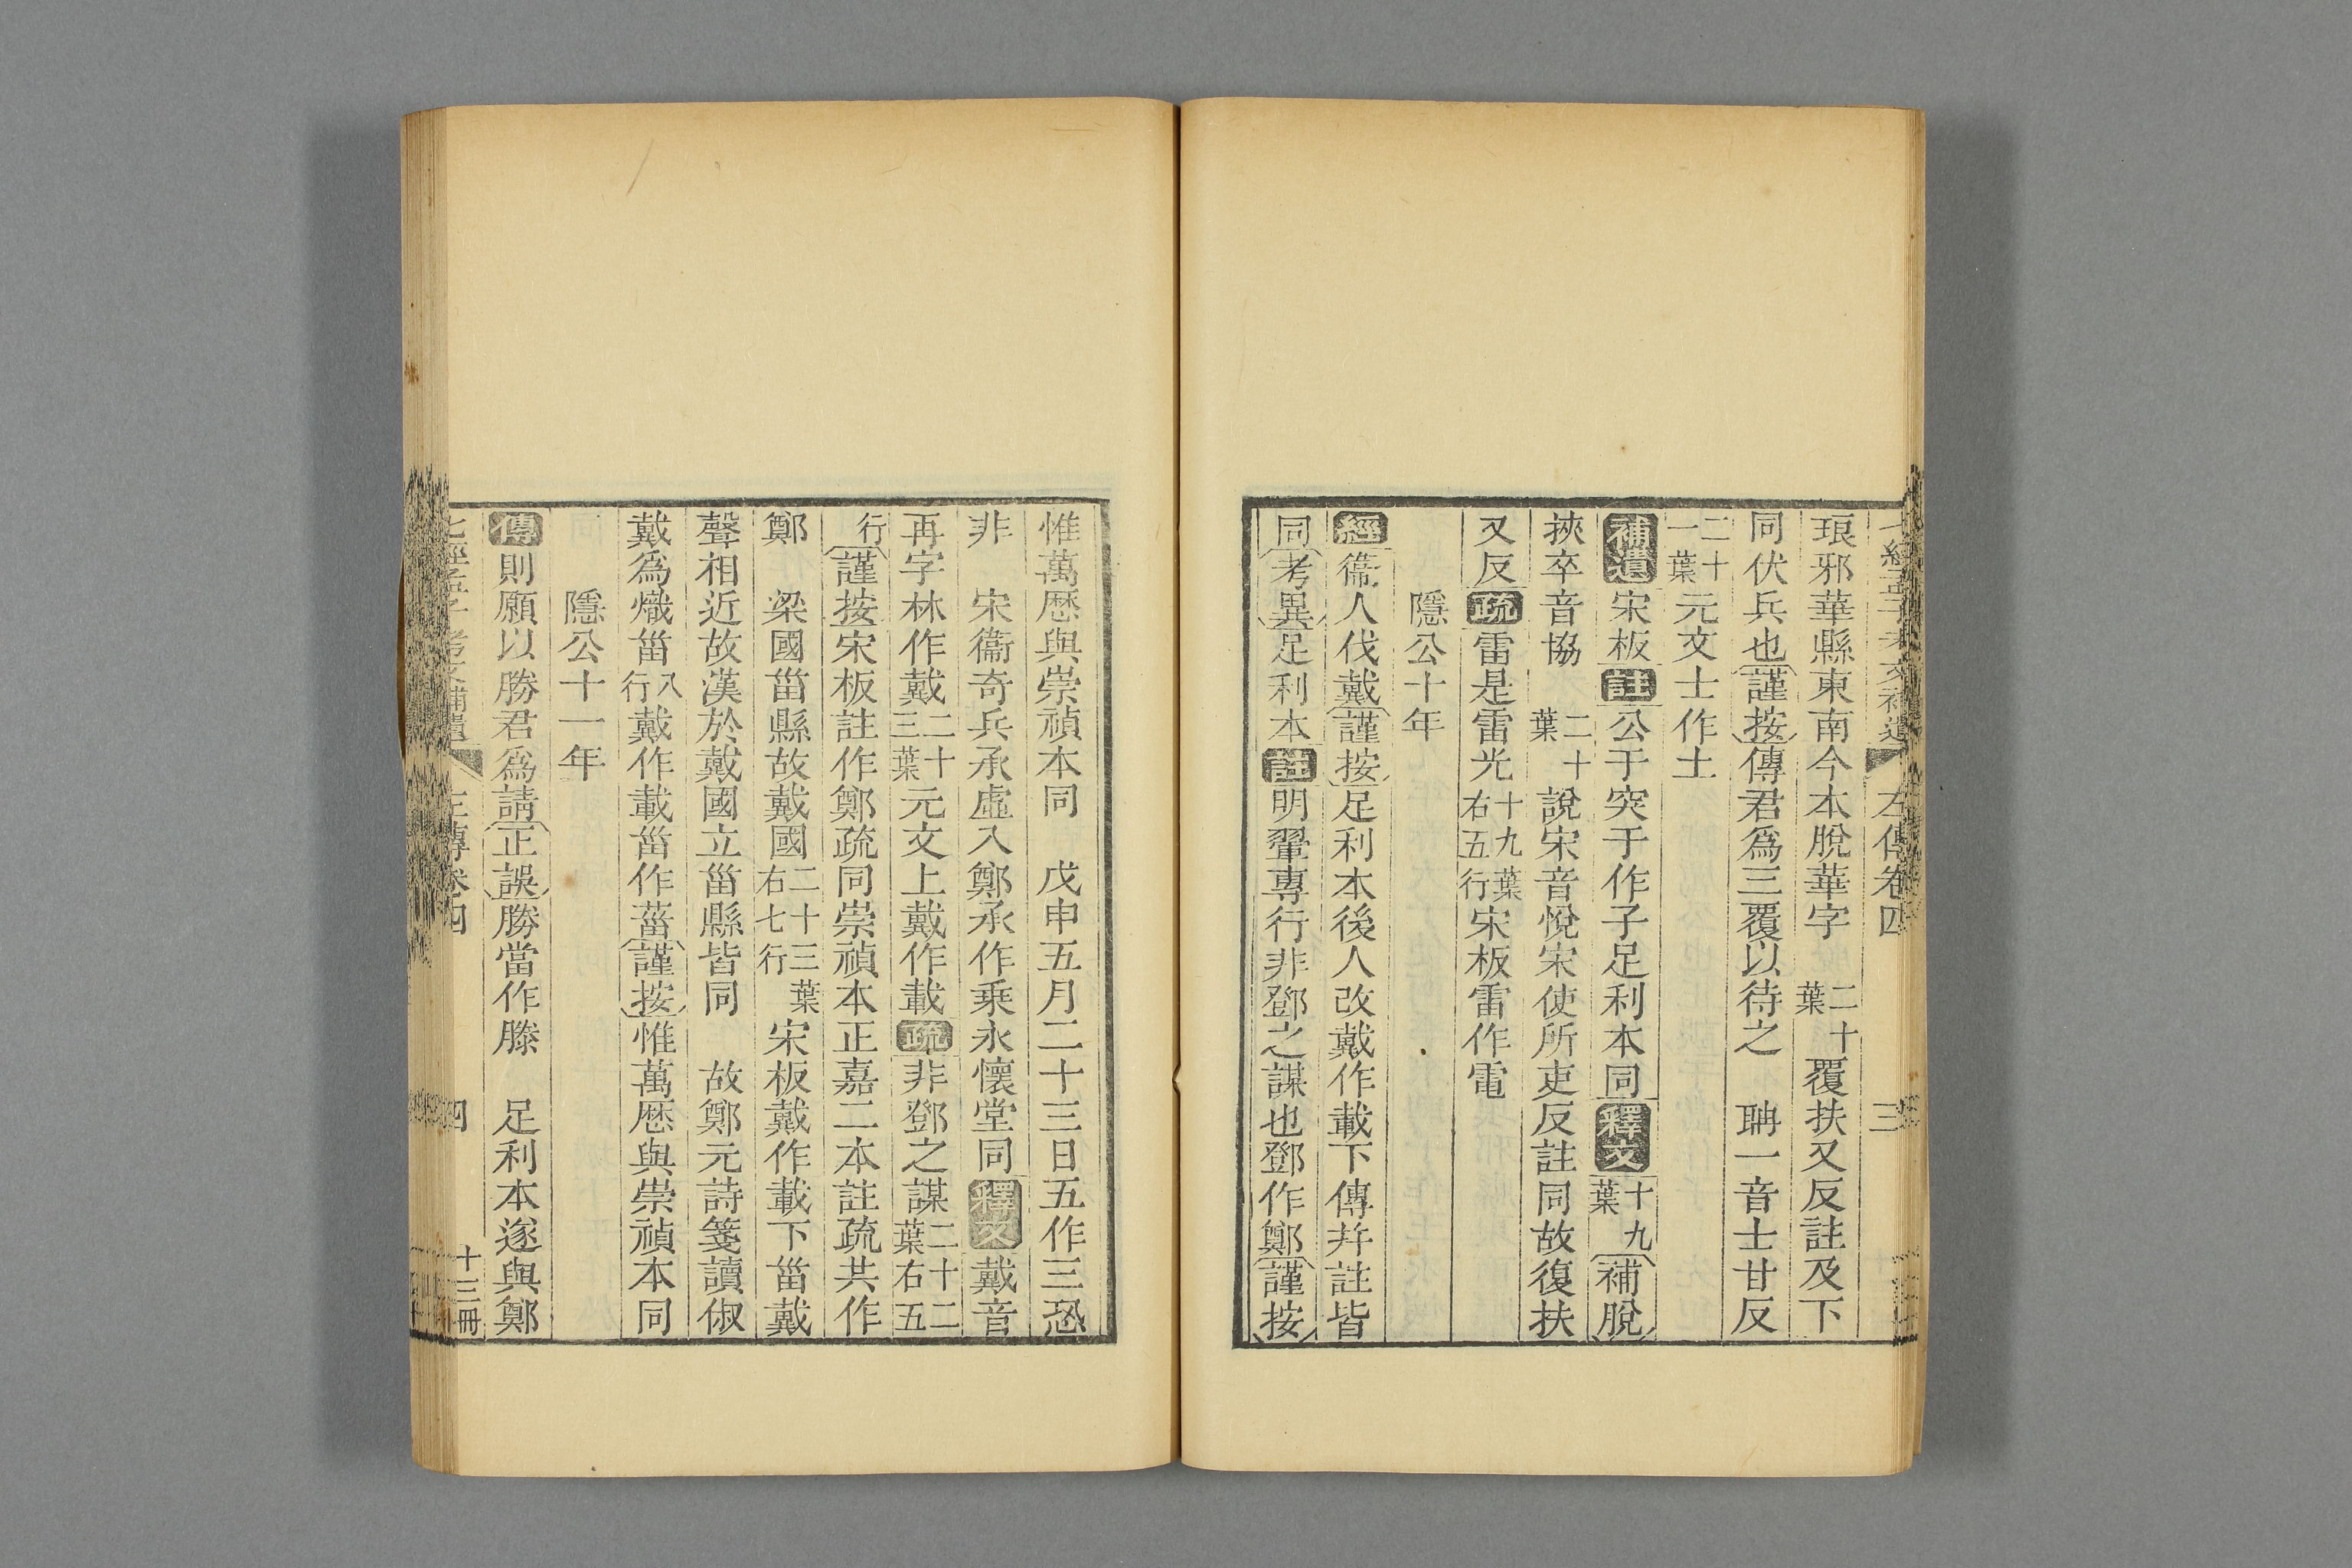 七經孟子考文補遺 左傳卷四 三
琅邪華縣東南今本脫華字 二十葉 覆扶又反註及下
同伏兵也謹按傳君爲三覆以待之 聃一音士甘反
二十一葉元文士作土
補遺宋板註公于突于作子足利本同釋文十九葉補脫
挾卒音協 二十葉 說宋音悅宋使所吏反註同故復扶
又反疏雷是雷光十九葉右五行宋板雷作電
隱公十年
經衞人伐戴謹按足利本後人改戴作載下傳幷註皆
同考異足利本註明翬專行非鄧之謀也鄧作鄭謹按
惟萬曆與崇禎本同 戊申五月二十三日五作三恐
非 宋衞奇兵承虛入鄭承作乗永懷堂同釋文戴音
再字林作戴二十三葉元文上戴作載疏非鄧之謀二十二葉右五
行謹按宋板註作鄭疏同崇禎本正嘉二本註疏共作
鄭 梁國甾縣故戴國二十三葉右七行宋板戴作載下甾戴
聲相近故漢於戴國立甾縣皆同 故鄭元詩箋讀俶
戴爲熾甾八行戴作載甾作菑謹按惟萬曆與崇禎本同
隱公十一年
傳則願以勝君爲請正誤勝當作滕 足利本遂與鄭
七經孟子考文補遺 左傳卷四 四 十三冊